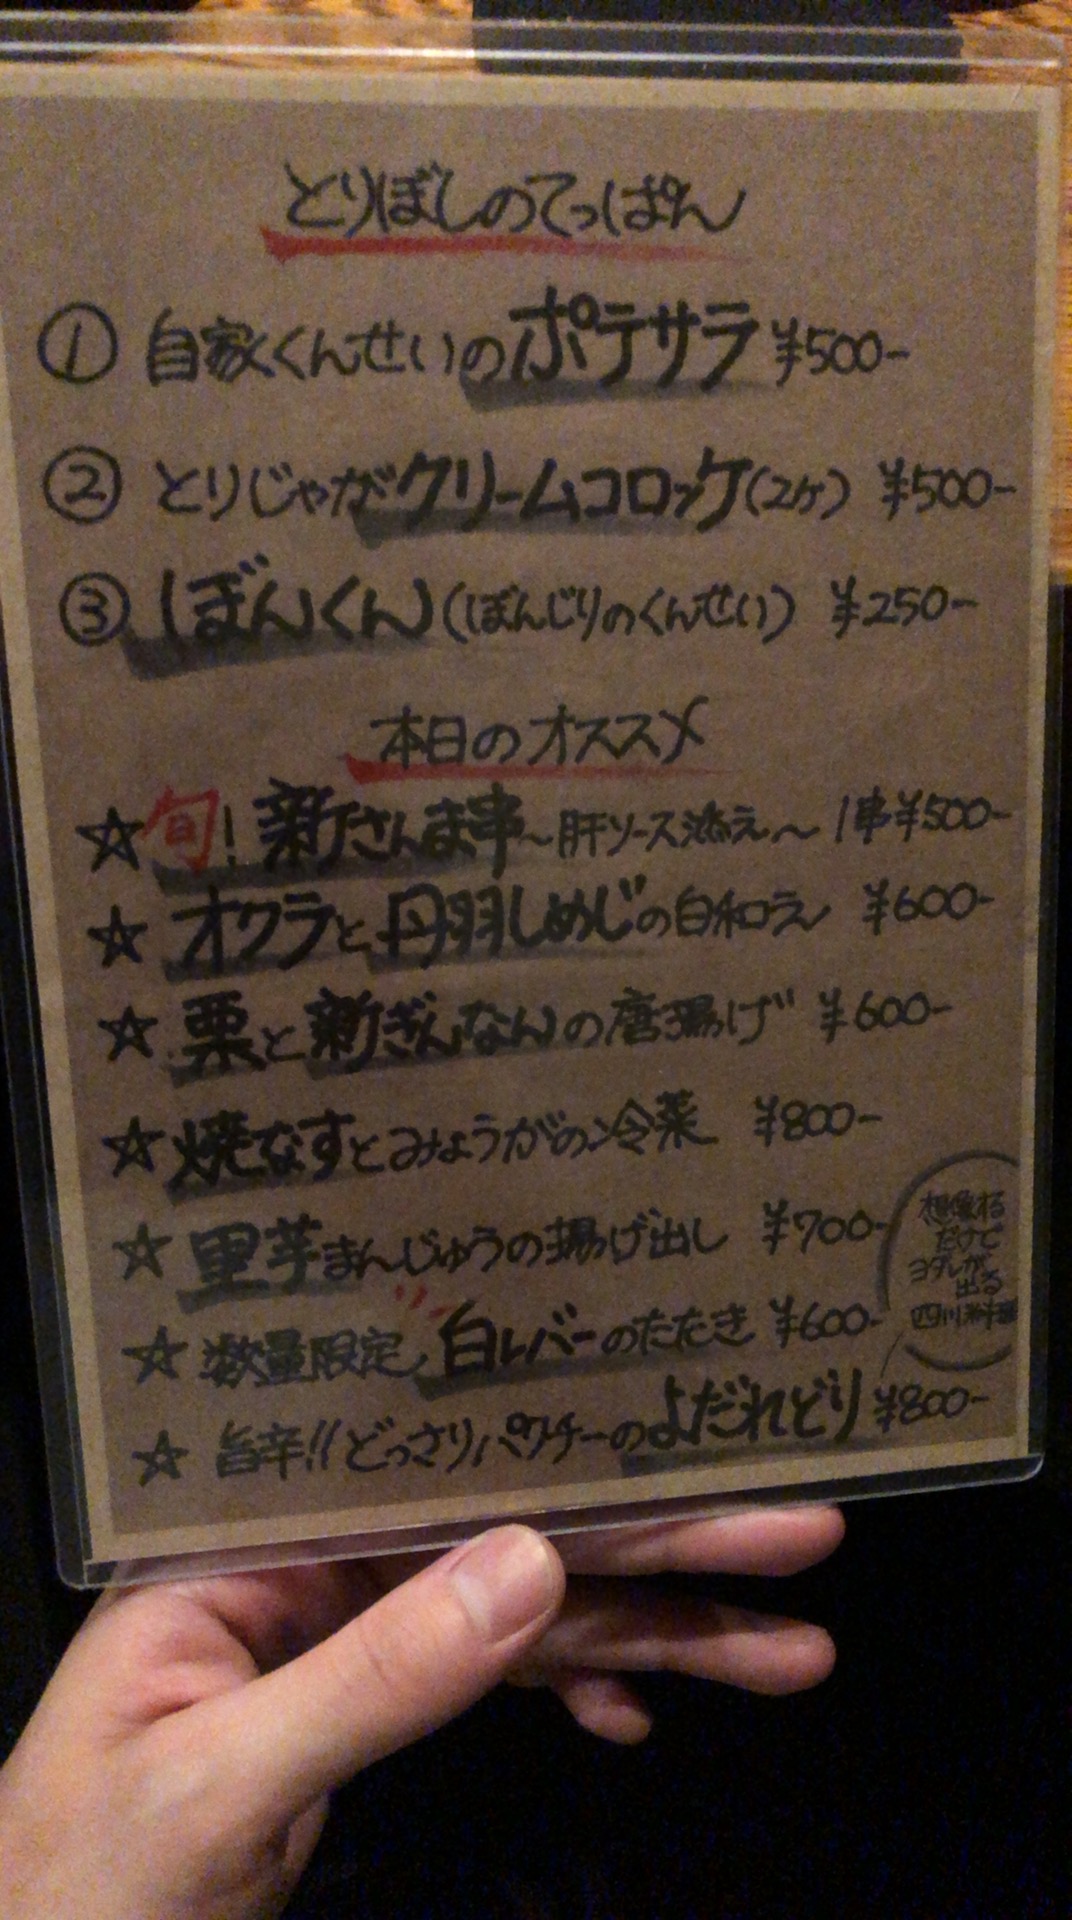 とりぼしのてっぱん
① 自家くんせいのポテサラ ¥500-
② とりじゃがクリームコロッケ(2ヶ) ¥500-
③ ぼんくん(ぼんじりのくんせい) ¥250-
本日のオススメ
☆ 旬! 新さんま串~肝ソース添え~ 1串¥500-
☆ オクラと丹羽しめじの白和え ¥600-
☆ 栗と新ぎんなんの唐揚げ ¥600-
☆ 焼なすとみょうがの冷菜 ¥800-
☆ 里芋まんじゅうの揚げ出し ¥700-
☆ 数量限定 白レバーのたたき ¥600-
☆ 旨辛!!どっさりパクチーのよだれどり ¥800-
想像する
だけで
ヨダレが
出る
四川料理